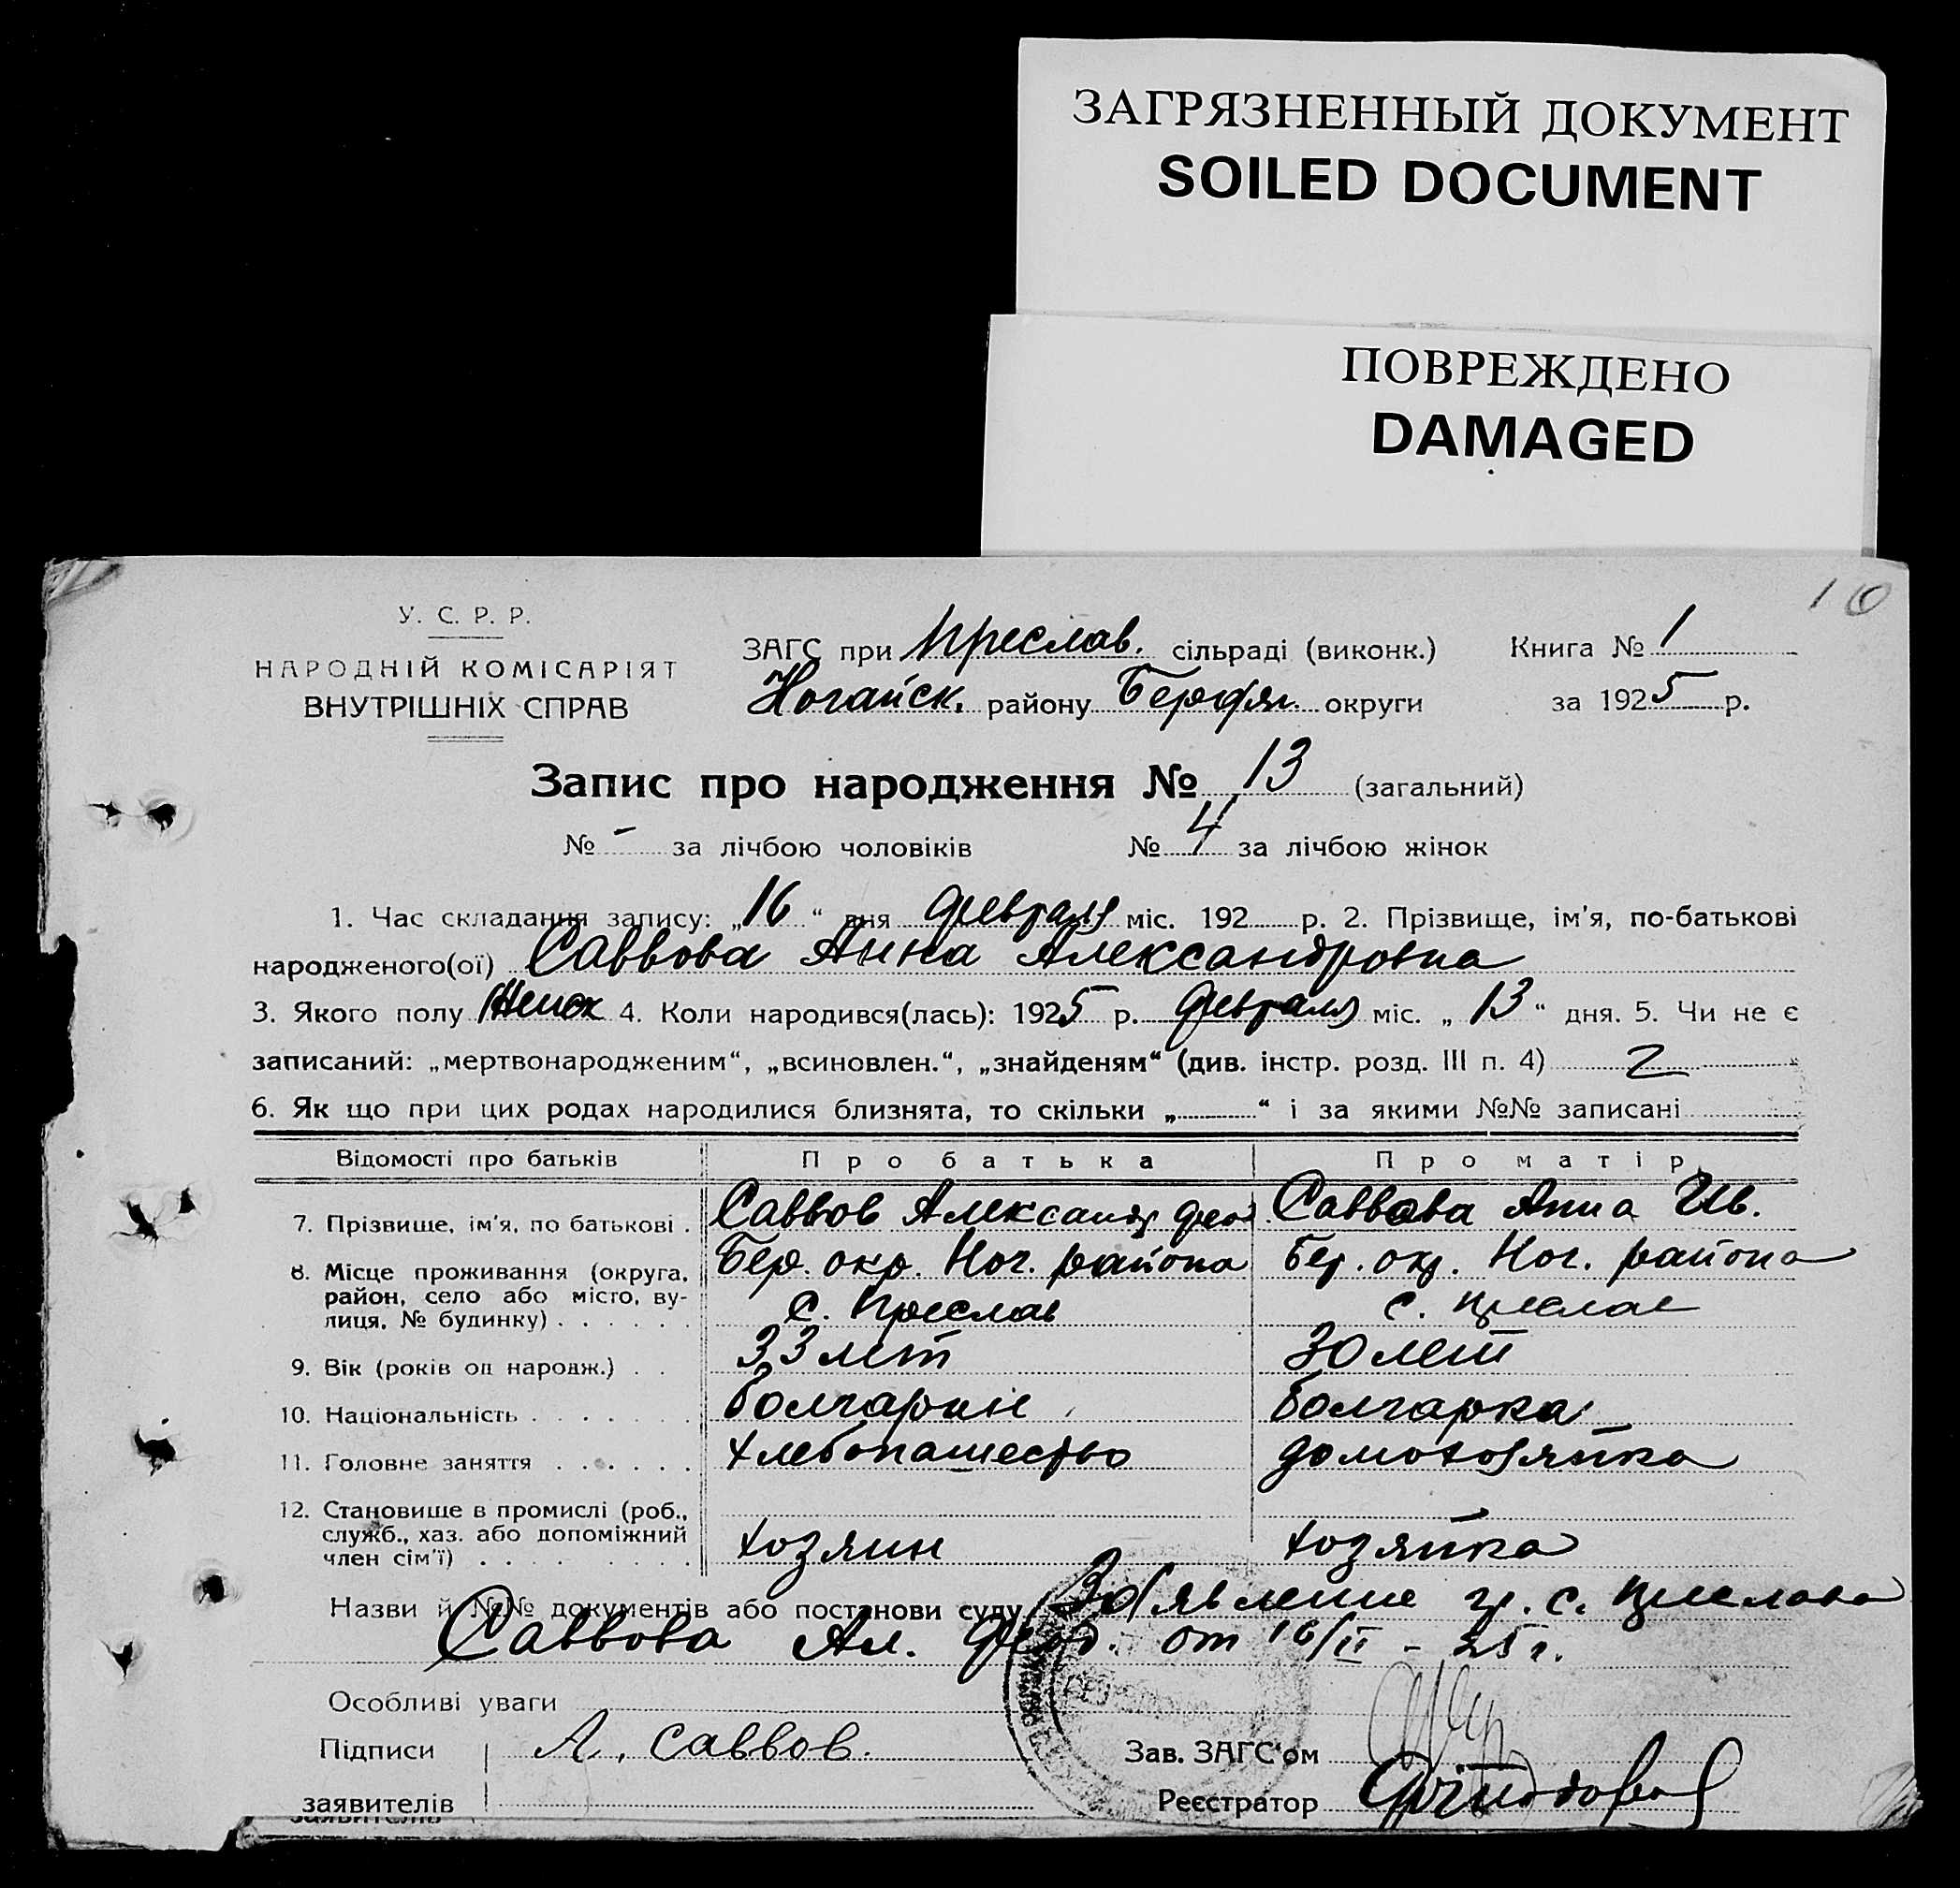 ЗАГРЯЗНЕННЫЙ ДОКУМЕНТ
SOILED DOCUMENT
ПОВРЕЖДЕНО
DAMAGED
10
У. С. Р. Р.
НАРОДНІЙ КОМІСАРІЯТ
ВНУТРІШНІХ СПРАВ
ЗАГС при Преслав. сільраді (виконк.) Книга № 1
Ногайск. району Бердян. округи за 1925 р.
Запис про народження № 13 (загальний)
№ - за лічбою чоловіків № 4 за лічбою жінок
1. Час складання запису: „16“ дня февраля міс. 192 р. 2. Прізвище, ім'я, по-батькові
народженого(ої) Саввова Анна Александровна
3. Якого полу Женск 4. Коли народився(лась): 1925 р. февраля міс. „13“ дня. 5. Чи не є
записаний: „мертвонародженим“, „всиновлен.“, „знайденям“ (див. інстр. розд. III п. 4)
6. Як що при цих родах народилися близнята, то скільки „ “ і за якими №№ записані
Відомості про батьків Про батька Про матір
7. Прізвище, ім'я, по батькові . Саввов Александр Феод. Саввова Анна Ив.
8. Місце проживання (округа, Бер. окр. Ног. района Бер. окр. Ног. района
район, село або місто, ву- с. Преслав с. Преслав
лиця, № будинку) . . . . . .
9. Вік (років од народж.) . . 33 лет 30 лет
10. Національність . . . . . . . болгарин болгарка
11. Головне заняття . . . . . . хлебопашество домохозяйка
12. Становище в промислі (роб.,
служб., хаз. або допоміжний хозяин хозяйка
член сім'ї) . . . . . . . .
Назви й №№ документів або постанови суду Заявление гр. с. Преслава
Саввова Ал. Феод. от 16/II - 25 г.
Особливі уваги
Підписи А. Саввов. Зав. ЗАГС'ом
заявителів Реєстратор
заявителів